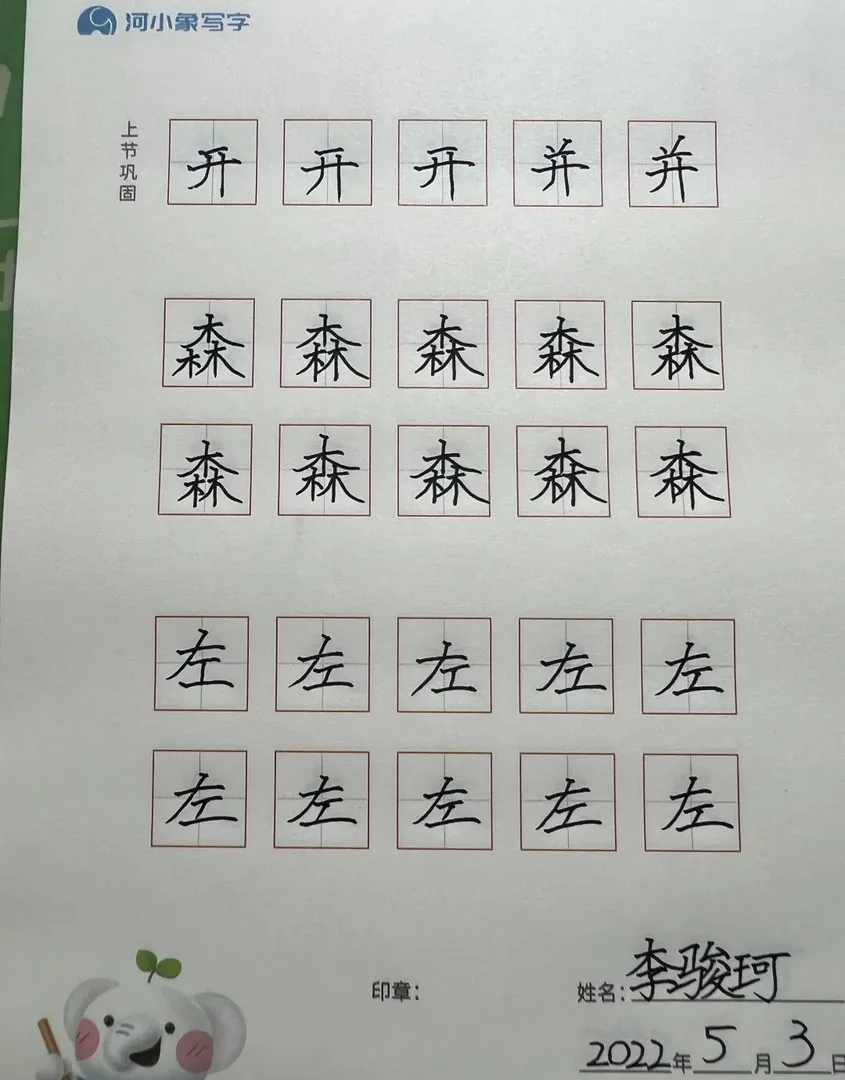 河小象写字
上节巩固
开 开 开 并 并
森 森 森 森 森
森 森 森 森 森
左 左 左 左 左
左 左 左 左 左
印章： 姓名：李骏珂
2022年5月3日